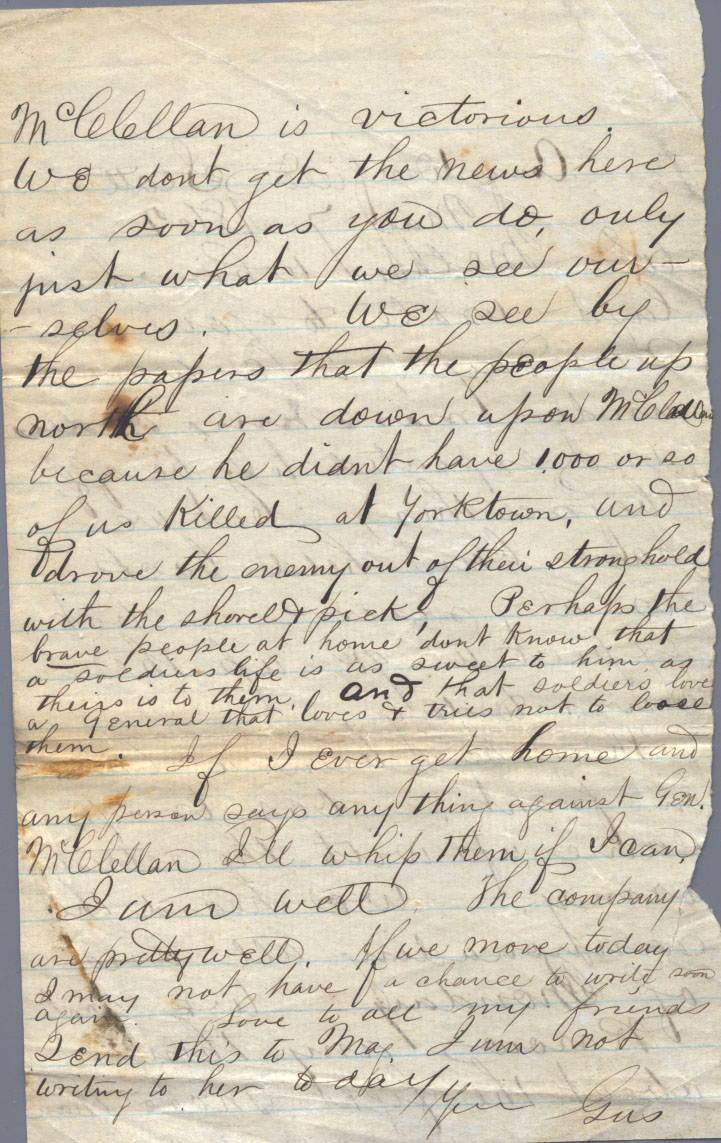 McClellan is victorious.
We dont get the news here
as soon as you do, only
just what we see our-
-selves. We see by
the papers that the people up
north are down upon McClellan
because he didnt have 1,000 or so
of us Killed at Yorktown, and
drove the enemy out of their stronghold
with the shovel & pick. Perhaps the
brave people at home dont know that
a soldiers life is as sweet to him as
theirs is to them. and that soldiers love
a General that loves & tries not to loose
them. If I ever get home and
any person says any thing against Gen.
McClellan I'll whip them if I can.
I am well. The company
are pretty well. If we move today
I may not have a chance to write soon
again. Love to all my friends
Send this to Mag. I am not
writing to her today
Gus